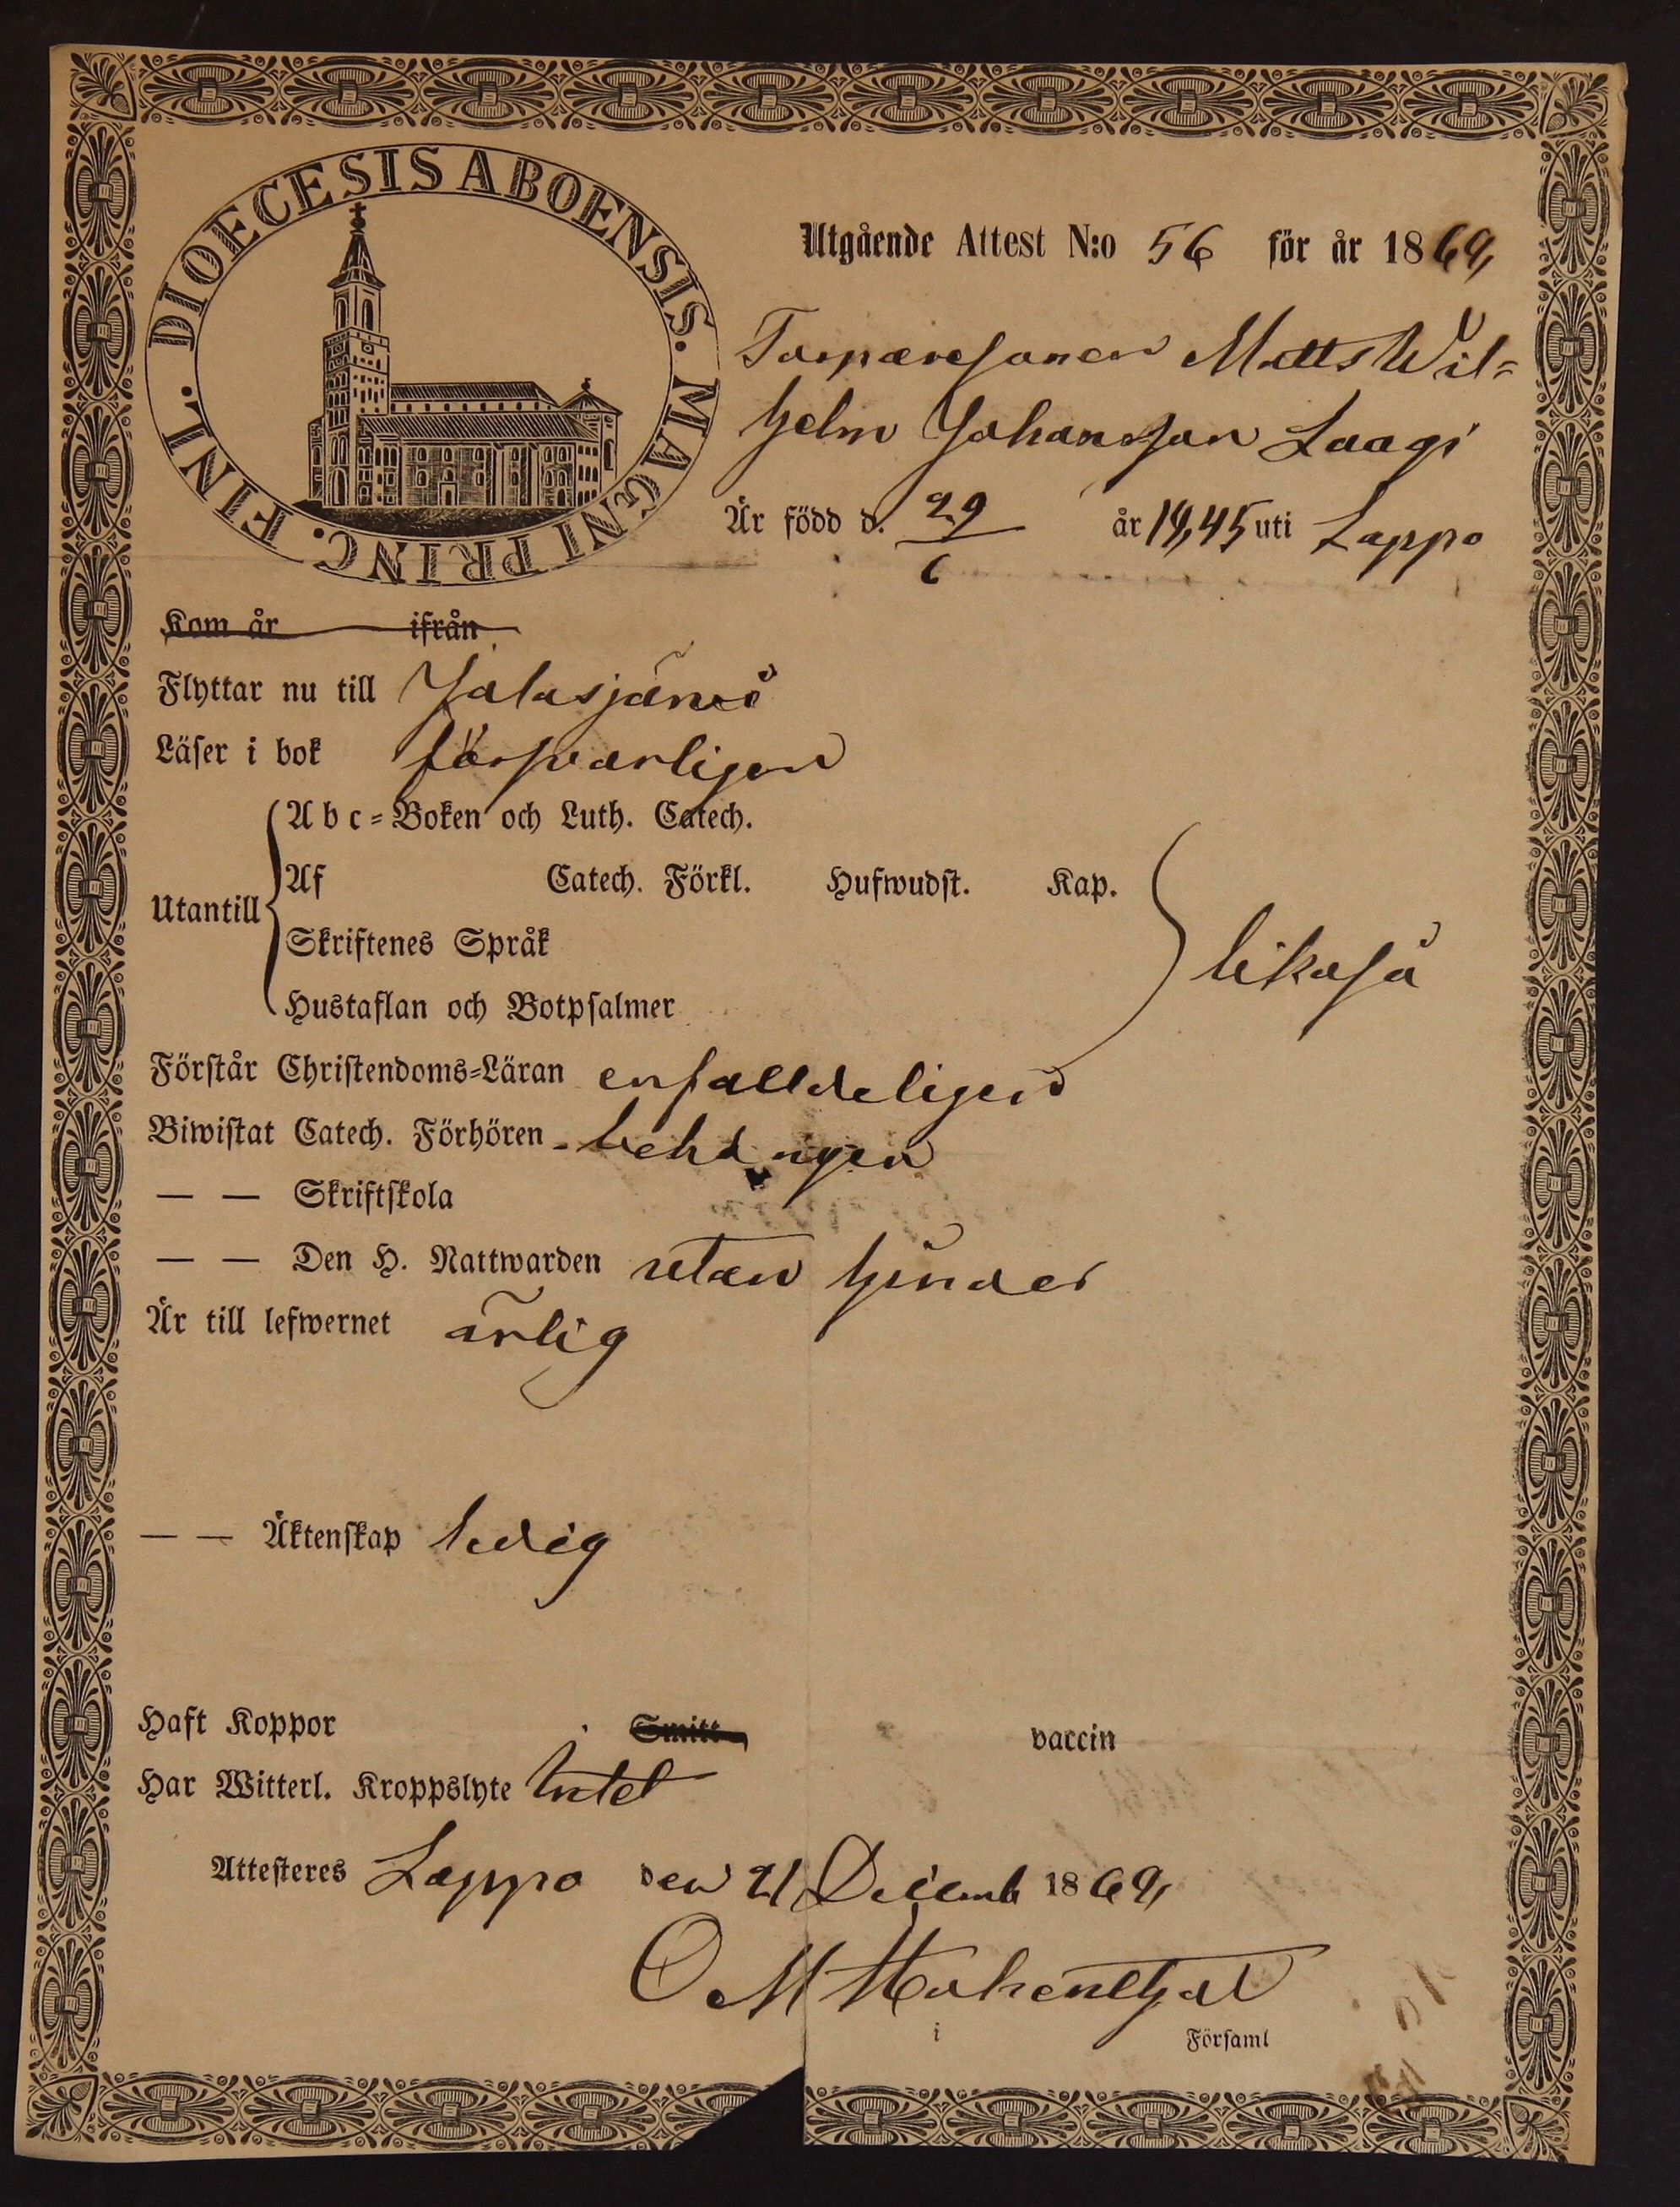 DIOECESIS ABOENSIS. MAGNI PRINC. FINL.
Utgående Attest N:o 56 för år 1869,
Torparesonen Matts Wil-
helm Johansson Laagi
Är född d. 29/6 år 18,45 uti Lappo
Kom år ifrån
Flyttar nu till Jalasjärvi
Läser i bok försvarligen
Utantill
Abc-Boken och Luth. Catech.
Af Catech. Förkl. Hufwudst. Kap.
Skriftenes Språk
Hustaflan och Botpsalmer
likaså
Förstår Christendoms-Läran enfalldeligen
Biwistat Catech. Förhören behörigen
— — Skriftskola
— — Den H. Nattwarden utan hinder
Är till lefwernet ärlig
— — Äktenskap ledig
Haft Koppor Smitt vaccin
Har Witterl. Kroppslyte Intet
Attesteres Lappo den 21 Decemb 1869,
i Församl